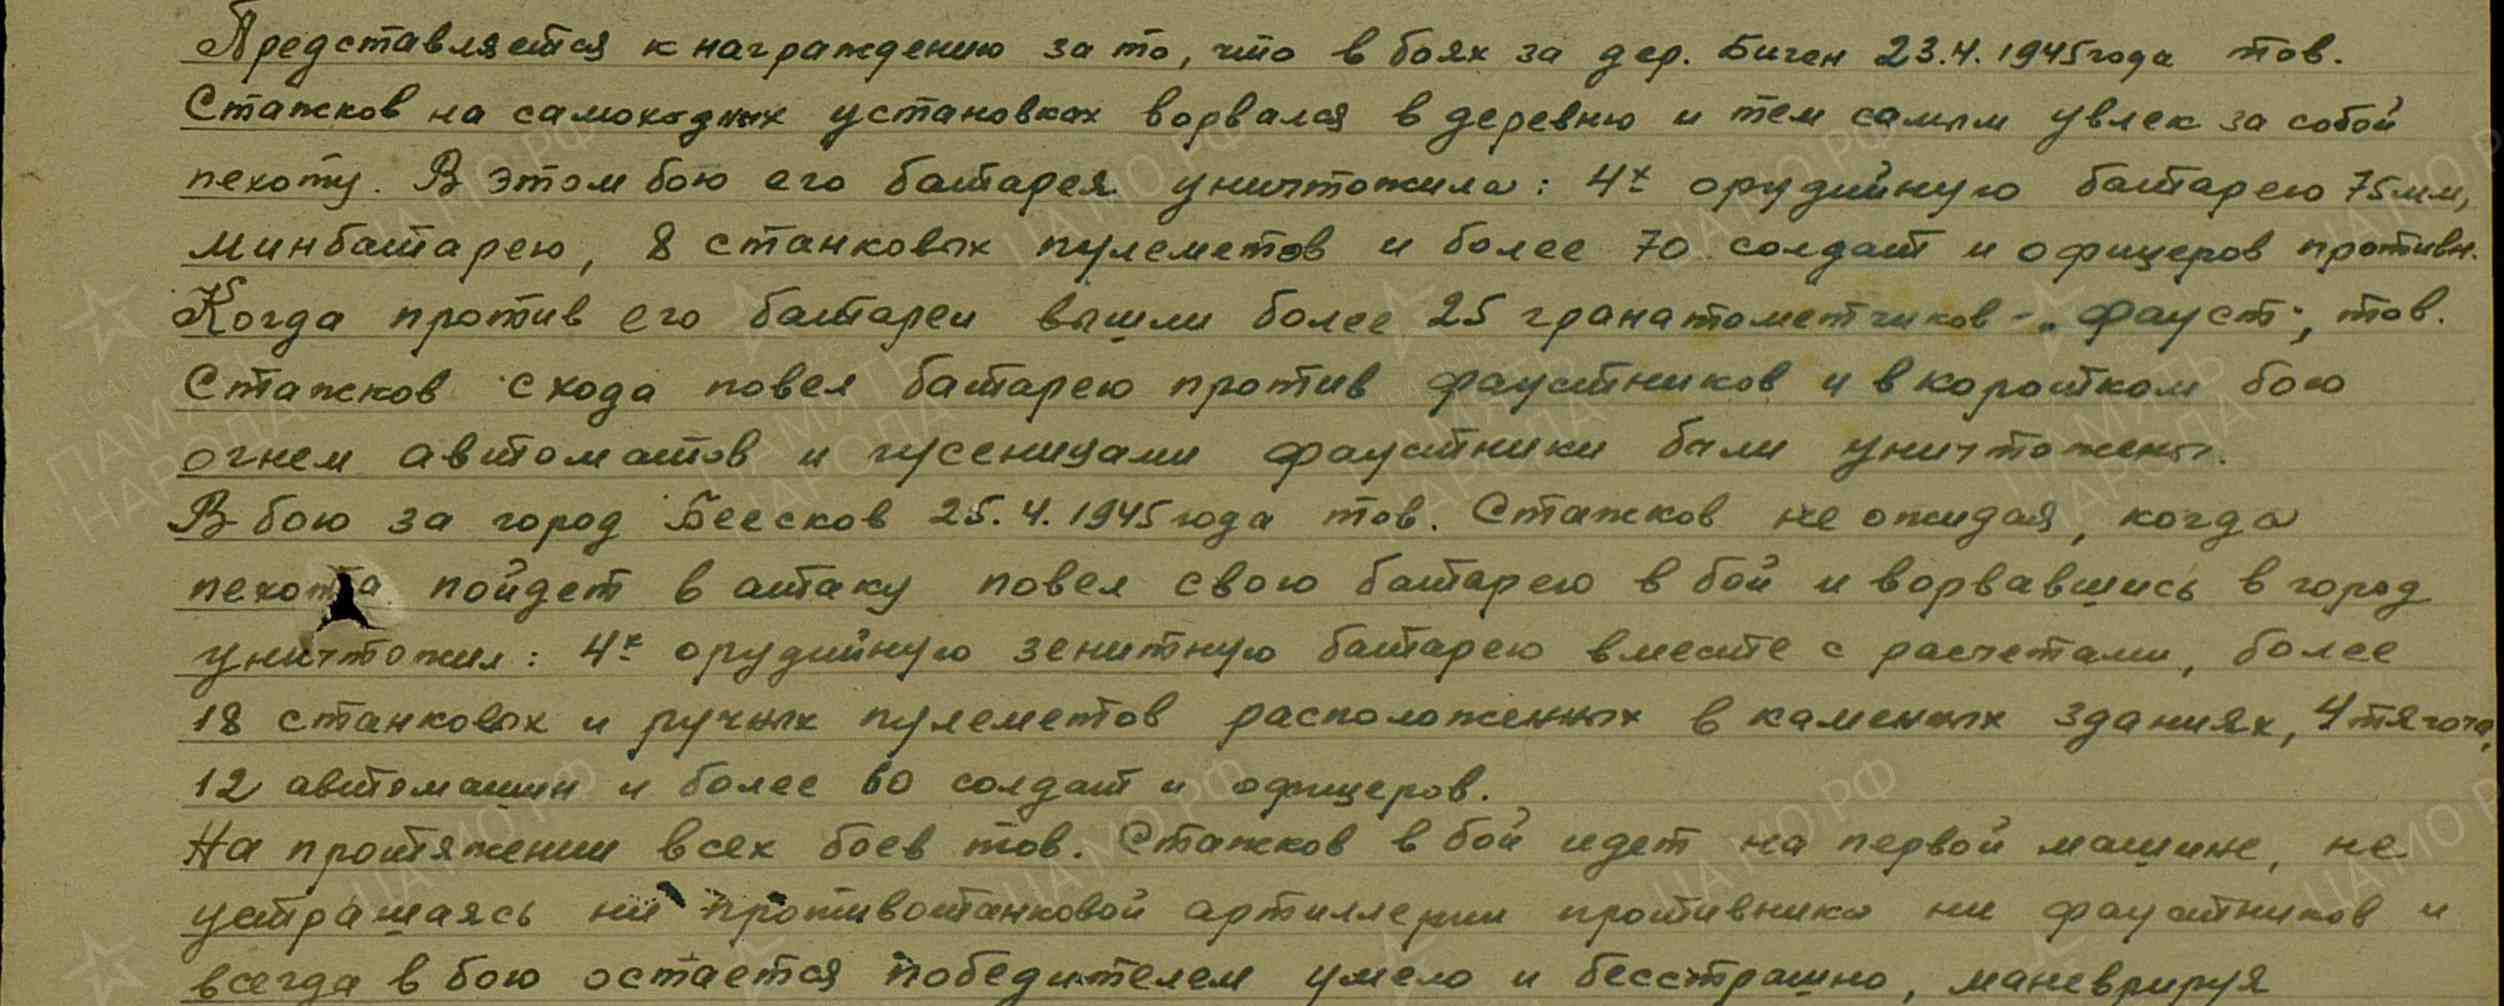 Представляется к награждению за то, что в боях за дер. Биген 23.4.1945 года тов.
Стажков на самоходных установках ворвался в деревню и тем самым увлек за собой
пехоту. В этом бою его батарея уничтожила: 4х орудийную батарею 75мм,
минбатарею, 8 станковых пулеметов и более 70 солдат и офицеров противн.
Когда против его батареи вышли более 25 гранатометчиков - "фауст", тов.
Стажков с хода повел батарею против фаустников и в коротком бою
огнем автоматов и гусеницами фаустники были уничтожены.
В бою за город Беесков 25.4.1945 года тов. Стажков не ожидая, когда
пехота пойдет в атаку повел свою батарею в бой и ворвавшись в город
уничтожил: 4х орудийную зенитную батарею вместе с расчетами, более
18 станковых и ручных пулеметов расположенных в каменых зданиях, 4 тягача,
12 автомашин и более 60 солдат и офицеров.
На протяжении всех боев тов. Стажков в бой идет на первой машине, не
устрашаясь ни противотанковой артиллерии противника ни фаустников и
всегда в бою остается победителем умело и бесстрашно, маневрируя